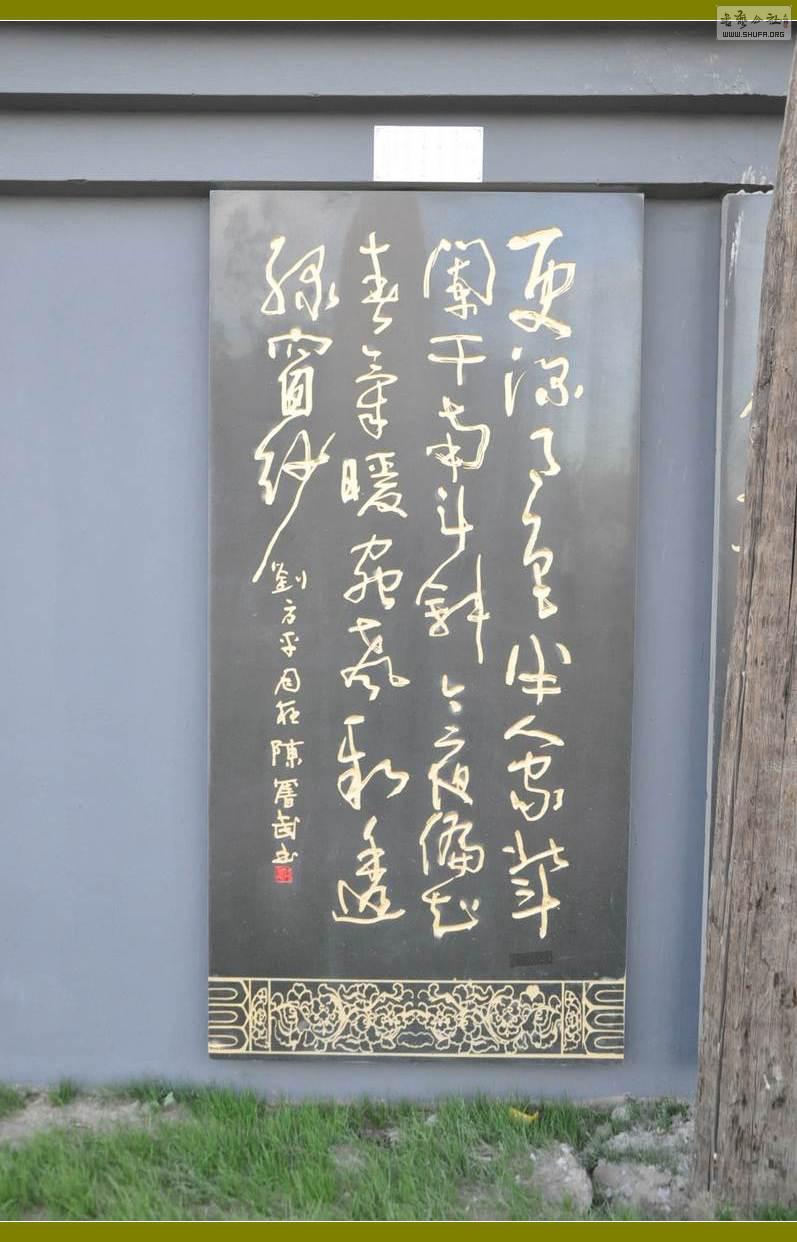 更深月色半人家北斗
闌干南斗斜今夜偏知
春氣暖蟲聲新透
綠窗紗
劉方平月夜 陳 武書
书艺公社
WWW.SHUFA.ORG